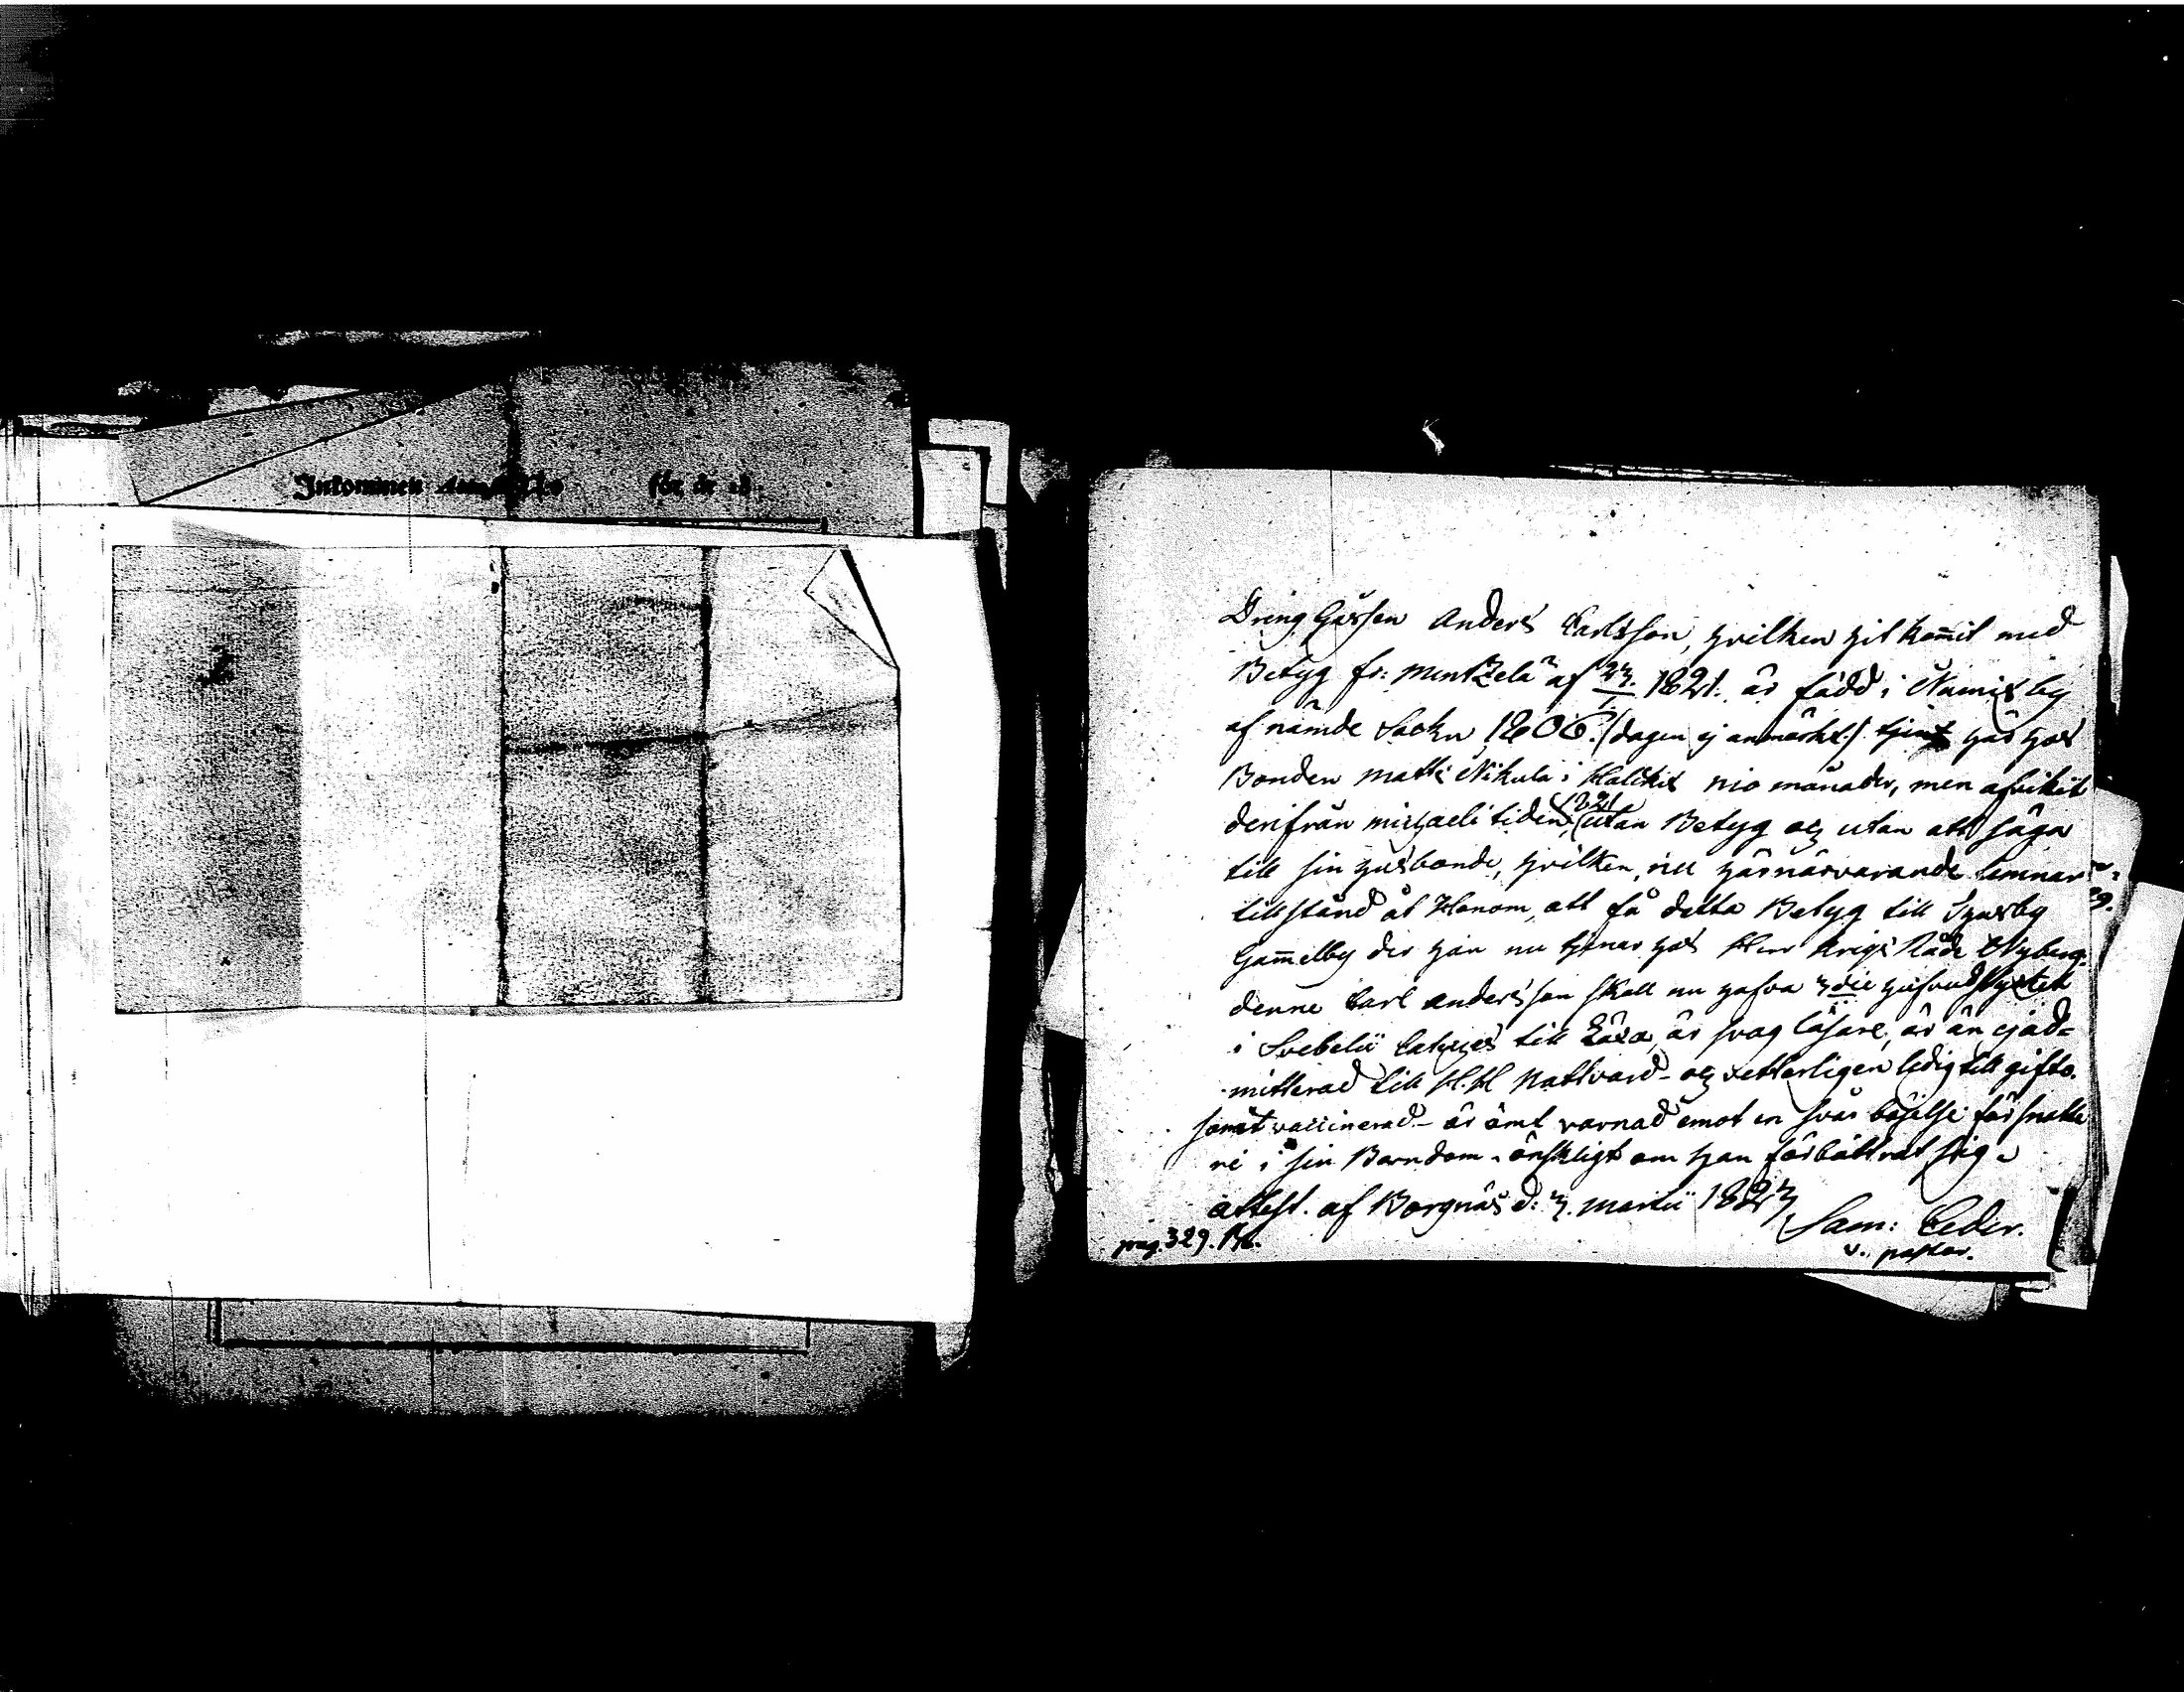 Inkommen för år 18
Dräng Gåssen Anders Carlsson, hvilken hit kom̄it med
Betyg fr: Mentzelä af 1821. är född i Numis by
af nämde Sockn 1806. (dagen ej anmärkt) tjent här hos
Bonden Matts Nikula i Halckis nio månader, men afvikit
derifrån Michaeli tiden 1821 utan Betyg och utan att säga
till sin husbonde, hvilken, nu härnärvarande lemnar
tillstånd åt Honom, att få detta Betyg till
Gam̄elby der han nu tjenar hos Herr Krigs Rådt Nyberg.
denne Carl Andersson skall nu hafva 3die hufvudstycket
i Svebelii Cateches till Läxa, är svag läsare, är än ej ad=
mitterad till H.H Nattvard - och vetterligen ledig till gifto.
samt vaccinerad - är ömt varnad emot en svår böjelse för snatte
ri i sin Barndom - önskligt om han förbättrat sig -
attest. af Borgnäs d: 3. Martii 1823
Sam: Ceder.
v. pastor.
pag. 329.